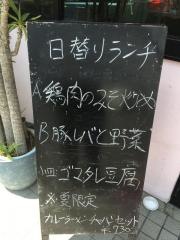 日替りランチ
A鶏肉のみそ炒め
B豚レバと野菜
小皿ゴマダレ豆腐
※夏限定
カレーラーメンチャーハンセット
¥730